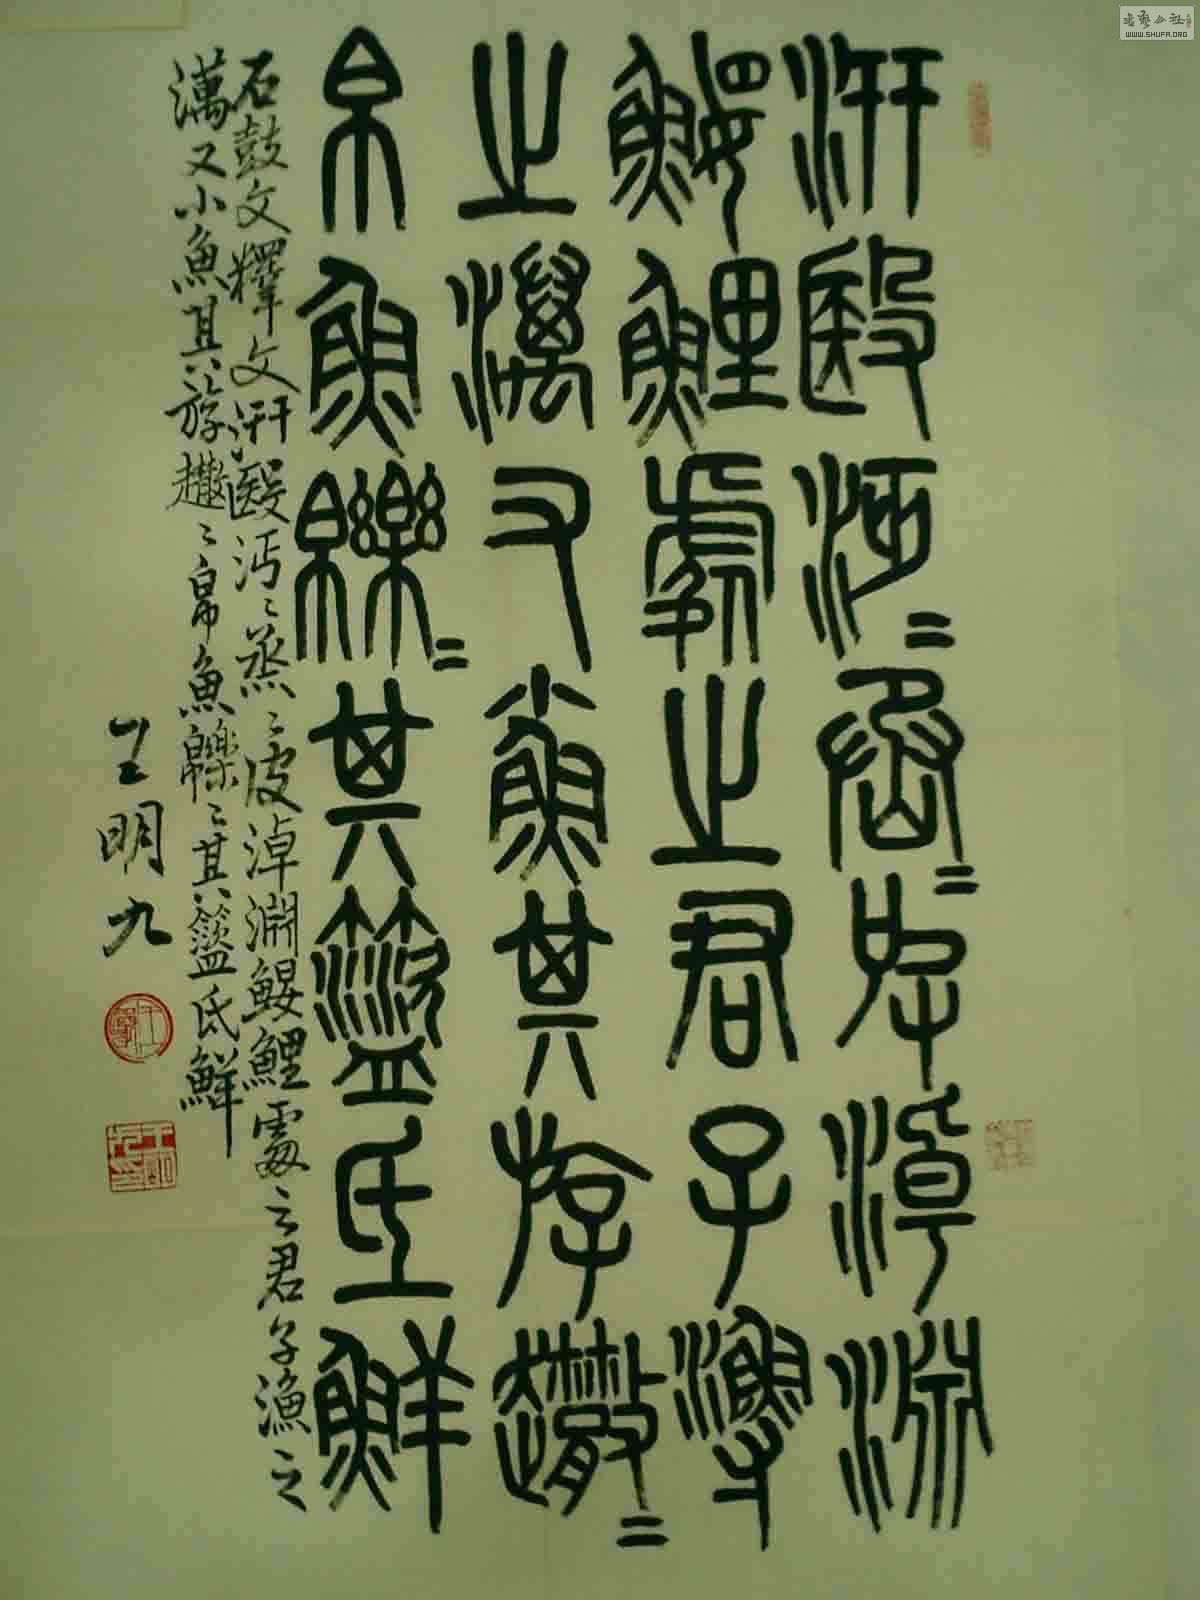 汧殹沔〻烝〻皮淖淵
鰋鯉處之君子漁
之澫又小魚其斿𧽯〻
帛魚皪〻其盜氐鮮
石鼓文釋文汧殹沔〻烝〻皮淖淵鰋鯉處之君子漁之
澫又小魚其斿𧽯〻帛魚皪〻其盜氐鮮
王明九
书艺公社
WWW.SHUFA.ORG